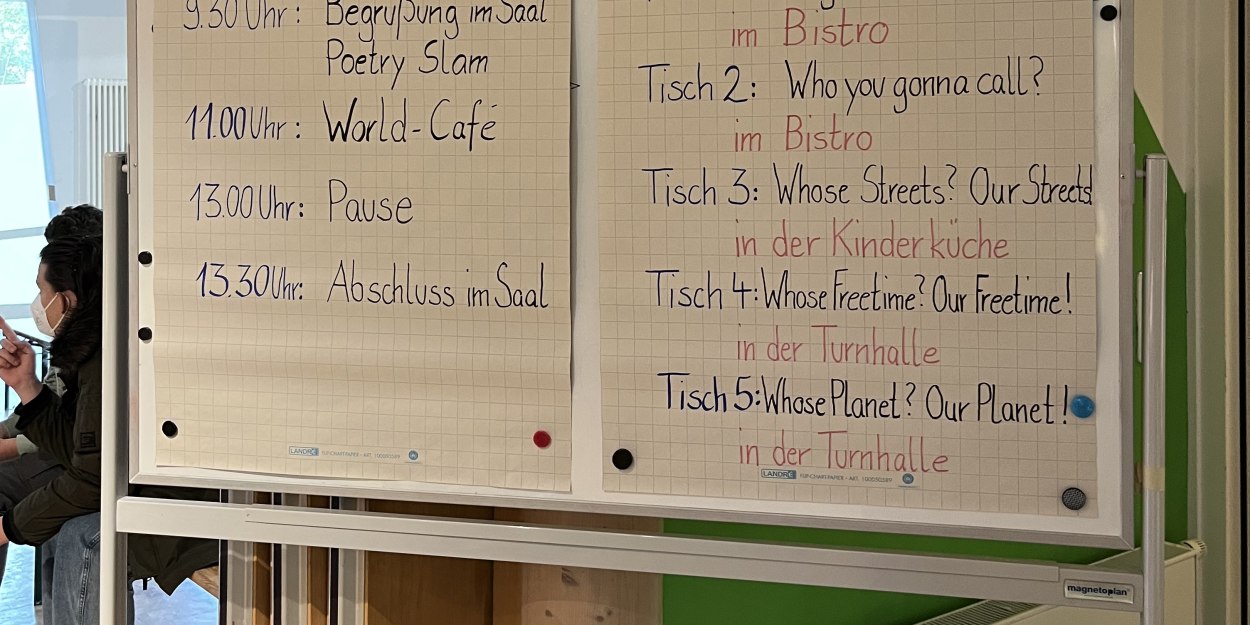 9.30 Uhr: Begrüßung im Saal
Poetry Slam
11.00 Uhr: World-Café
13.00 Uhr: Pause
13.30 Uhr: Abschluss im Saal
LANDRÉ FLIP-CHART-PAPIER - ART. 100050589
im Bistro
Tisch 2: Who you gonna call?
im Bistro
Tisch 3: Whose Streets? Our Streets!
in der Kinderküche
Tisch 4: Whose Freetime? Our Freetime!
in der Turnhalle
Tisch 5: Whose Planet? Our Planet!
in der Turnhalle
LANDRÉ FLIP-CHART-PAPIER - ART. 100050589
magnetoplan